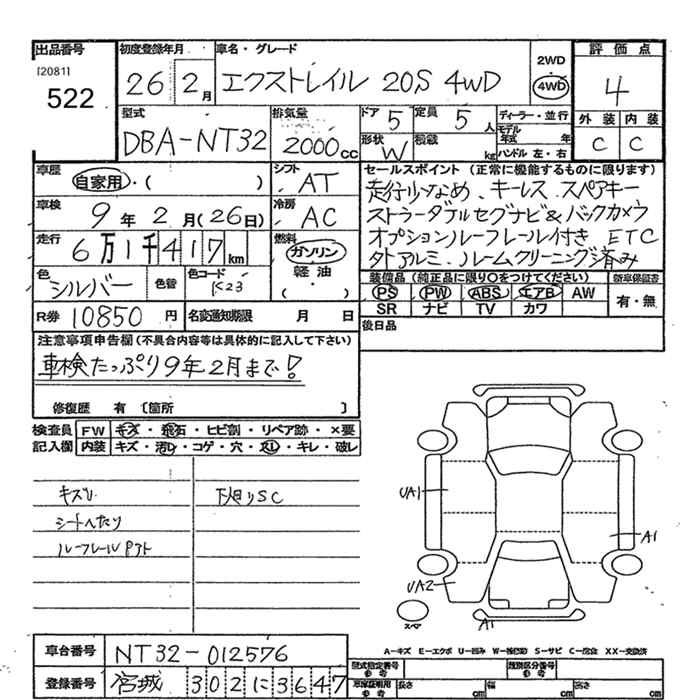 出品番号 初度登録年月 車名・グレード 2WD 評価点
[20811] 522 26 2月 エクストレイル 20S 4WD 4WD 4
型式 排気量 ドア 5 定員 5人 ディーラー・並行 外装 内装
DBA-NT32 2000cc 形状 W 積載 kg モデル年式 年 C C
ハンドル 左・右
車歴 自家用・( ) シフト AT セールスポイント (正常に機能するものに限ります)
走行少なめ、キーレス スペアキー
車検 9年2月(26日) 冷房 AC ストラーダフルセグナビ&バックカメラ
走行 6万1千417km 燃料 ガソリン オプションルーフレール付き ETC
軽油・( ) 外アルミ、ルームクリーニング済み
色 シルバー 色替 色コード K23 装備品(純正品に限り○をつけてください) 新車保証書
PS PW ABS エアB AW 有・無
SR ナビ TV カワ
R券 10850円 名変通知期限 月 日 後日品
注意事項申告欄(不具合内容等は具体的に記入して下さい)
車検たっぷり9年2月まで!
修復歴 有 〔箇所 〕
検査員 FW キズ・飛石・ヒビ割・リペア跡・×要
記入欄 内装 キズ・汚レ・コゲ・穴・スレ・キレ・破レ
キズU 下廻りSC
シートヘタリ
UA1
A1
UA2
スペア A1
A-キズ E-エクボ U-凹み W-補修跡 S-サビ C-腐食 XX-交換済
車台番号 NT32-012576 型式指定番号 参考 類別区分番号 参考
登録番号 宮城 302に3647 車庫証明用 参考 長さ cm 幅 cm 高さ cm